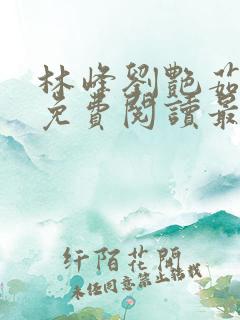 林峰劉艷茹
免費閱讀最
纤陌花開
未经同意禁止转载